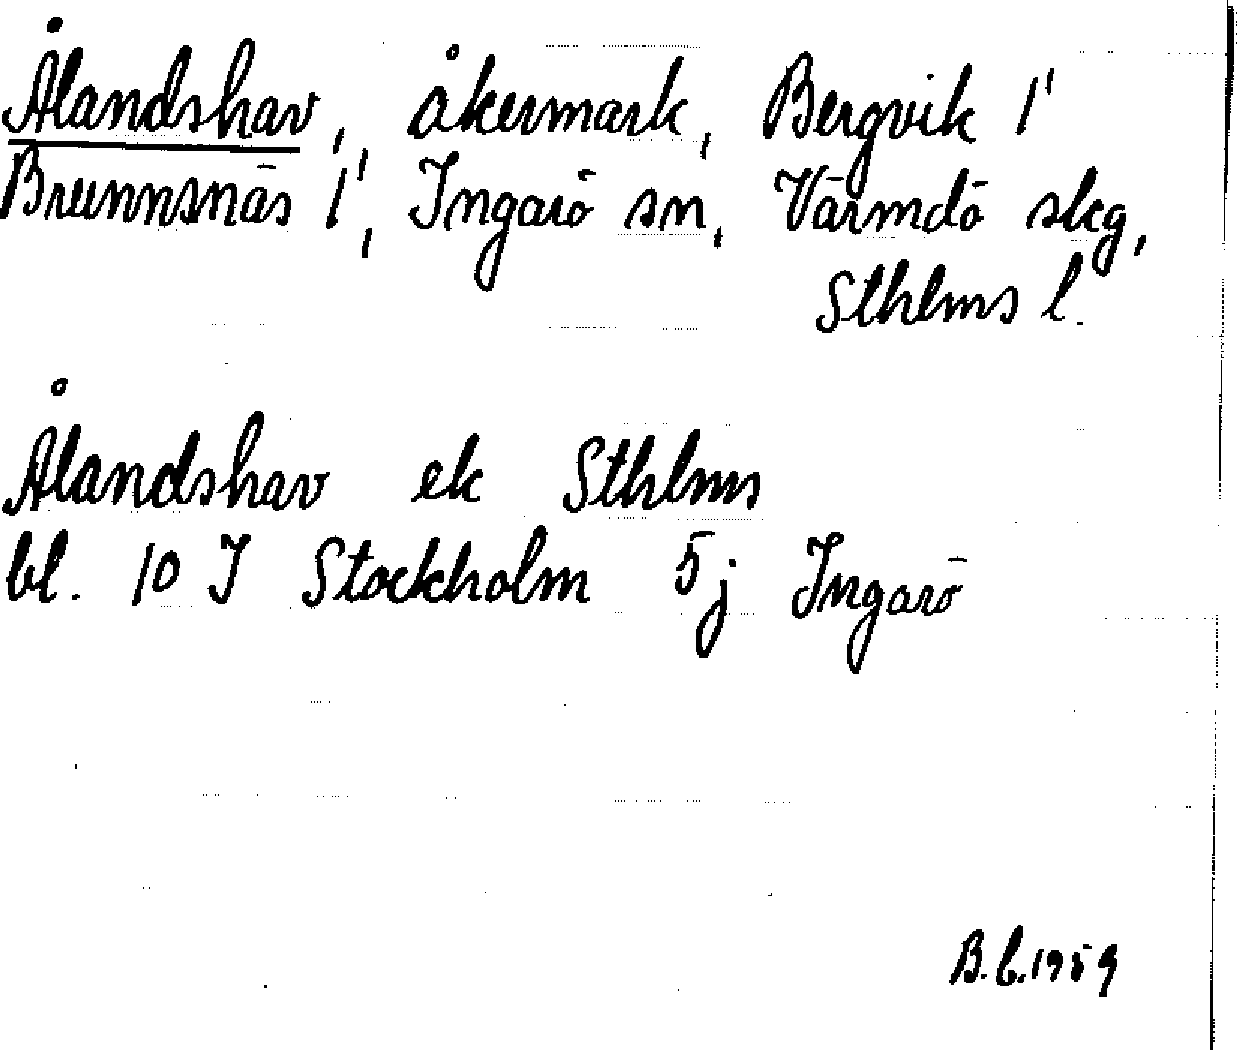 Ålandshav, åkermark, Bergvik 1'
Brunnsnäs 1', Ingarö sn, Värmdö skg,
Sthlms l.
Ålandshav ek Sthlms
bl. 10 I Stockholm 5j Ingarö
B.C. 1959